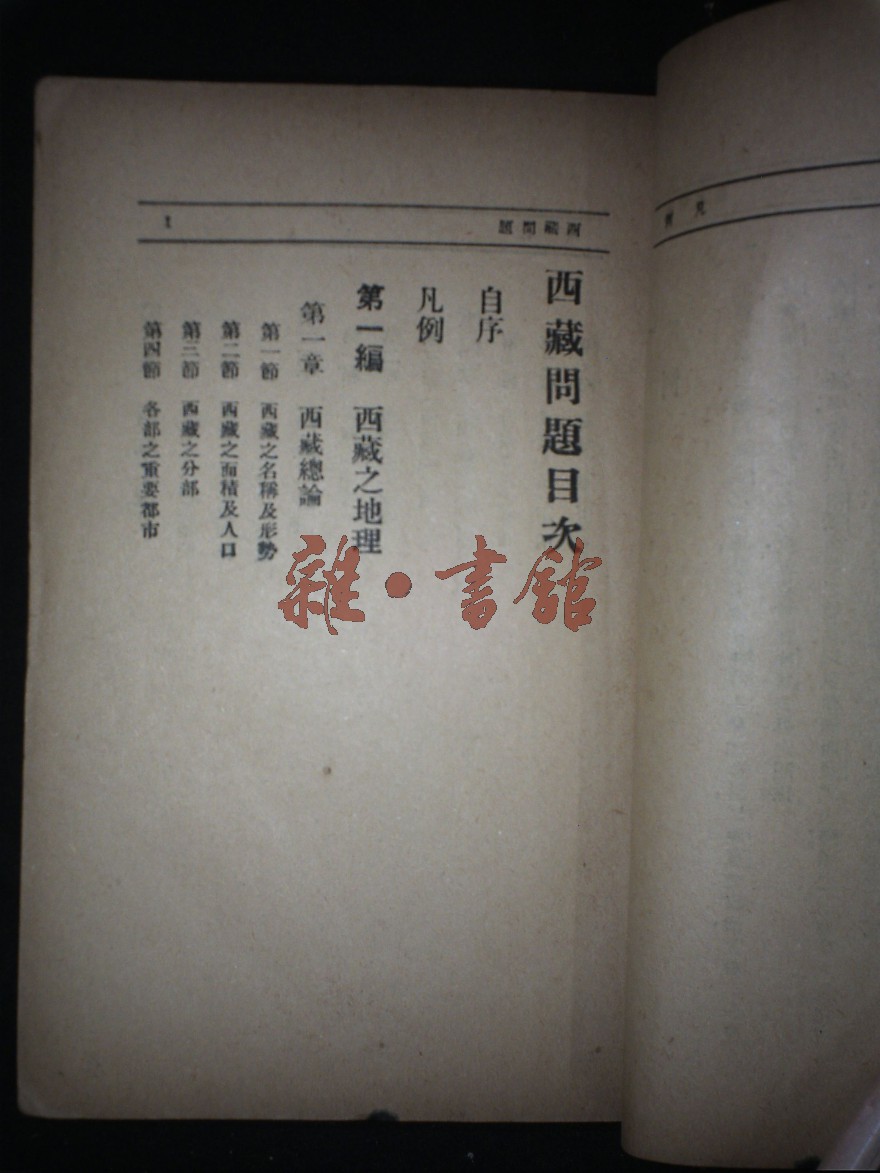 凡例
西藏問題
1
西藏問題目次
自序
凡例
第一編 西藏之地理
第一章 西藏總論
第一節 西藏之名稱及形勢
第二節 西藏之面積及人口
第三節 西藏之分部
第四節 各部之重要都市
雜·書館